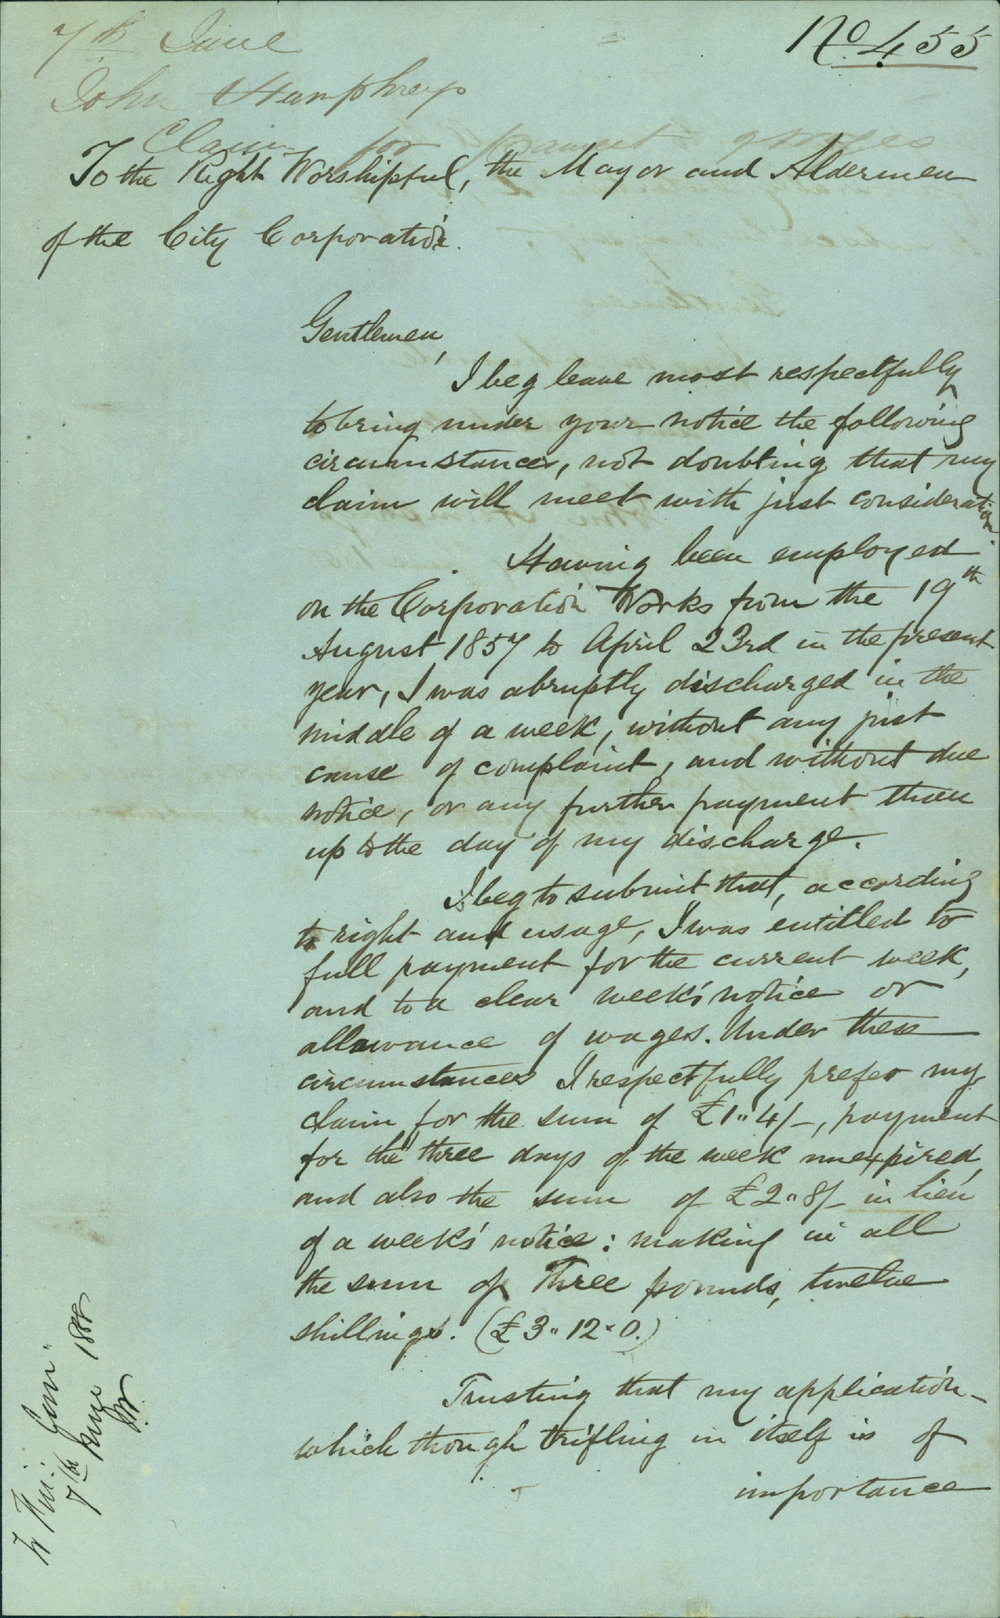 No 455
7th June
John Humphreys
Claim for payment of wages
To the Right Worshipful, the Mayor and Aldermen
of the City Corporation.
Gentlemen,
I beg leave most respectfully
to bring under your notice the following
circumstances, not doubting that my
claim will meet with just consideration.
Having been employed
on the Corporation Works from the 19th
August 1857 to April 23rd in the present
year, I was abruptly discharged in the
middle of a week, without any just
cause of complaint, and without due
notice, or any further payment than
up to the day of my discharge.
I beg to submit that, according
to right and usage, I was entitled to
full payment for the current week,
and to a clear week's notice or
allowance of wages. Under these
circumstances I respectfully prefer my
claim for the sum of £1"4/-, payment
for the three days of the week unexpired,
and also the sum of £2"8/- in lieu
of a week's notice: making in all
the sum of Three pounds, twelve
shillings. (£3"12"0.)
Trusting that my application -
which though trifling in itself is of
importance
Fin: Com:
7th June 1858